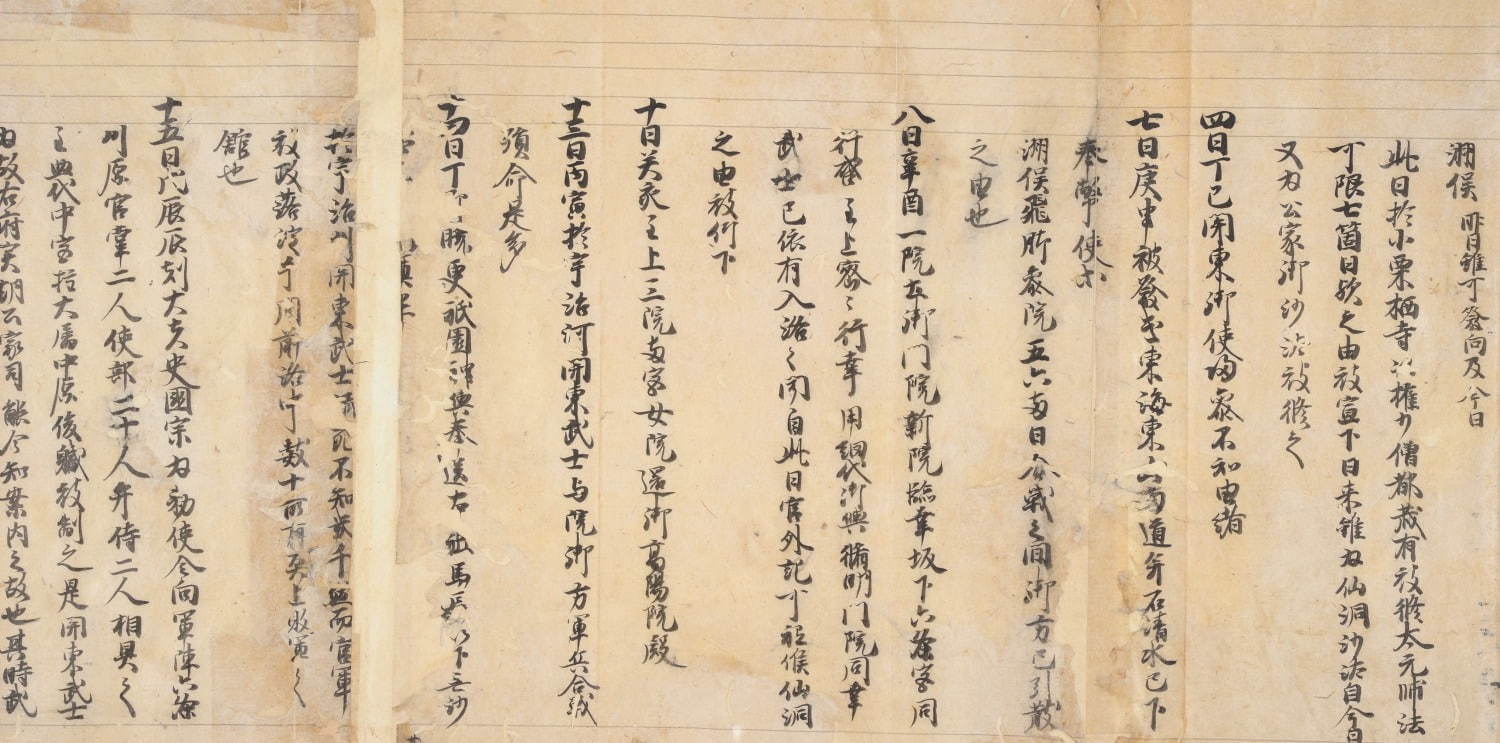 此日於小栗栖寺以権少僧都哉有被修太元帥法
可限七箇日歟之由被宣下日来雖為仙洞沙汰自今日
又為公家御沙汰被修之
四日丁巳関東御使帰参不知由緒
七日庚申被発遣東海東山両道并石清水已下
奉幣使
湖俣飛脚参院五六両日合戦之間御方已引散
之由也
八日辛酉一院土御門院新院臨幸坂下六条宮同
行啓主上密々行幸用網代御輿脩明門院同幸
武士已依有入洛之聞自此日官外記可祗候仙洞
之由被仰下
十日癸亥主上三院両宮女院還御高陽院殿
十三日丙寅於宇治河関東武士与院御方軍兵合戦
殞命是多
十四日丁卯勝更祇園神輿奉送右馬以下無沙
於宇治川関東武士溺死不知幾千然而官軍
被敗落淀方聞前洛中数十所有矣上放軍
館也
十五日戊辰辰刻大夫史國宗為勅使令向軍陣六条
川原官掌二人使部二十人弁侍二人相具之
主典代中宮権大属中原俊職被制之是関東武士
為故右府実朝公家司能令知案内之故也其時武